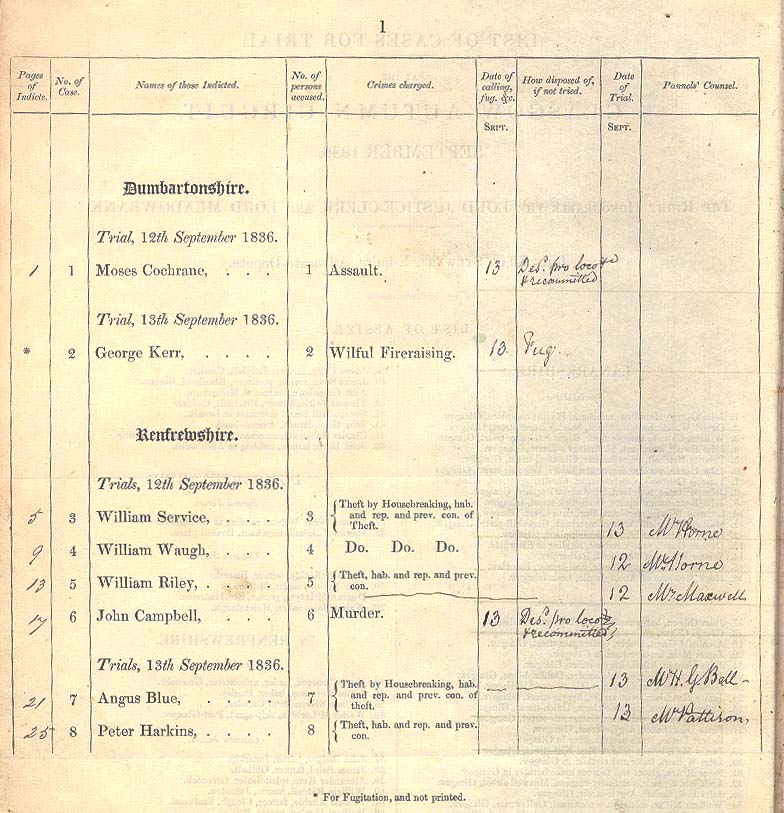 1
Pages of Indicts. No. of Case. Names of those Indicted. No. of persons accused. Crimes charged. Date of calling, fug. &c. How disposed of, if not tried. Date of Trial. Pannels' Counsel.
SEPT. SEPT.
Dumbartonshire.
Trial, 12th September 1836.
1 1 Moses Cochrane, . . . 1 Assault. 13 Des. pro loco &
& recommitted
Trial, 13th September 1836.
* 2 George Kerr, . . . . 2 Wilful Fireraising. 13. Fug.
Renfrewshire.
Trials, 12th September 1836.
5 3 William Service, . . . 3 Theft by Housebreaking, hab. and rep. and prev. con. of Theft. 13 Mr Horne
9 4 William Waugh, . . . 4 Do. Do. Do. 12 Mr Horne
13 5 William Riley, . . . . 5 Theft, hab. and rep. and prev. con. 12 Mr Maxwell
17 6 John Campbell, . . . 6 Murder. 13 Des. pro loco &
& recommitted
Trials, 13th September 1836.
21 7 Angus Blue, . . . . 7 Theft by Housebreaking, hab. and rep. and prev. con. of theft. 13 Mr H. G. Bell
25 8 Peter Harkins, . . . . 8 Theft, hab. and rep. and prev. con. 13 Mr Pattison
* For Fugitation, and not printed.